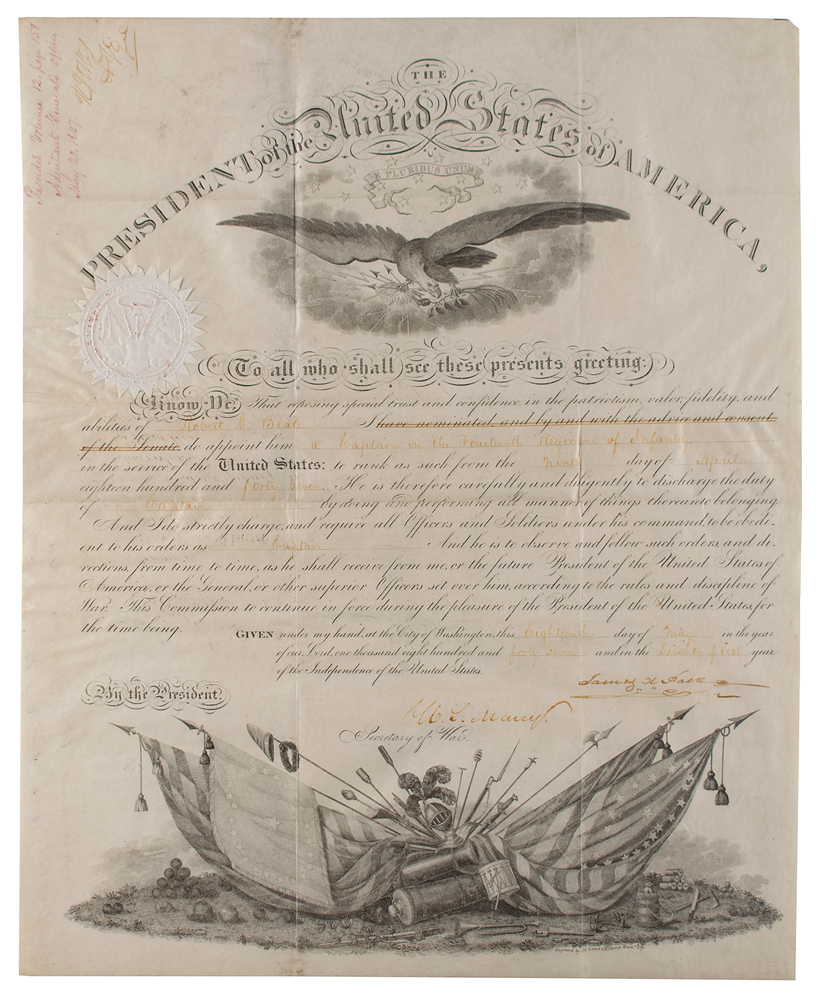 Volume 12, page 159
Adjutant General's Office
May 22, 1847.
THE
PRESIDENT of the United States of AMERICA,
E PLURIBUS UNUM
To all who shall see these presents greeting:
Know Ye, That reposing special trust and confidence in the patriotism, valor, fidelity, and
abilities of Robert G. Beale I have nominated, and by and with the advice and consent
of the Senate, do appoint him a Captain in the Fourteenth Regiment of Infantry
in the service of the United States: to rank as such from the Ninth day of April
eighteen hundred and forty seven. He is therefore carefully and diligently to discharge the duty
of Captain by doing and performing all manner of things thereunto belonging
And I do strictly charge, and require all Officers and Soldiers under his command, to be obedi-
ent to his orders as Captain And he is to observe and follow such orders, and di-
rections, from time to time, as he shall receive from me, or the future President of the United States of
America, or the General, or other superior Officers set over him, according to the rules and discipline of
War. This Commission to continue in force during the pleasure of the President of the United States, for
the time being.
GIVEN under my hand, at the City of Washington, this Eighteenth day of May in the year
of our Lord, one thousand eight hundred and forty seven and in the Seventy first year
of the Independence of the United States.
James K Polk
By the President,
W. L. Marcy.
Secretary of War.